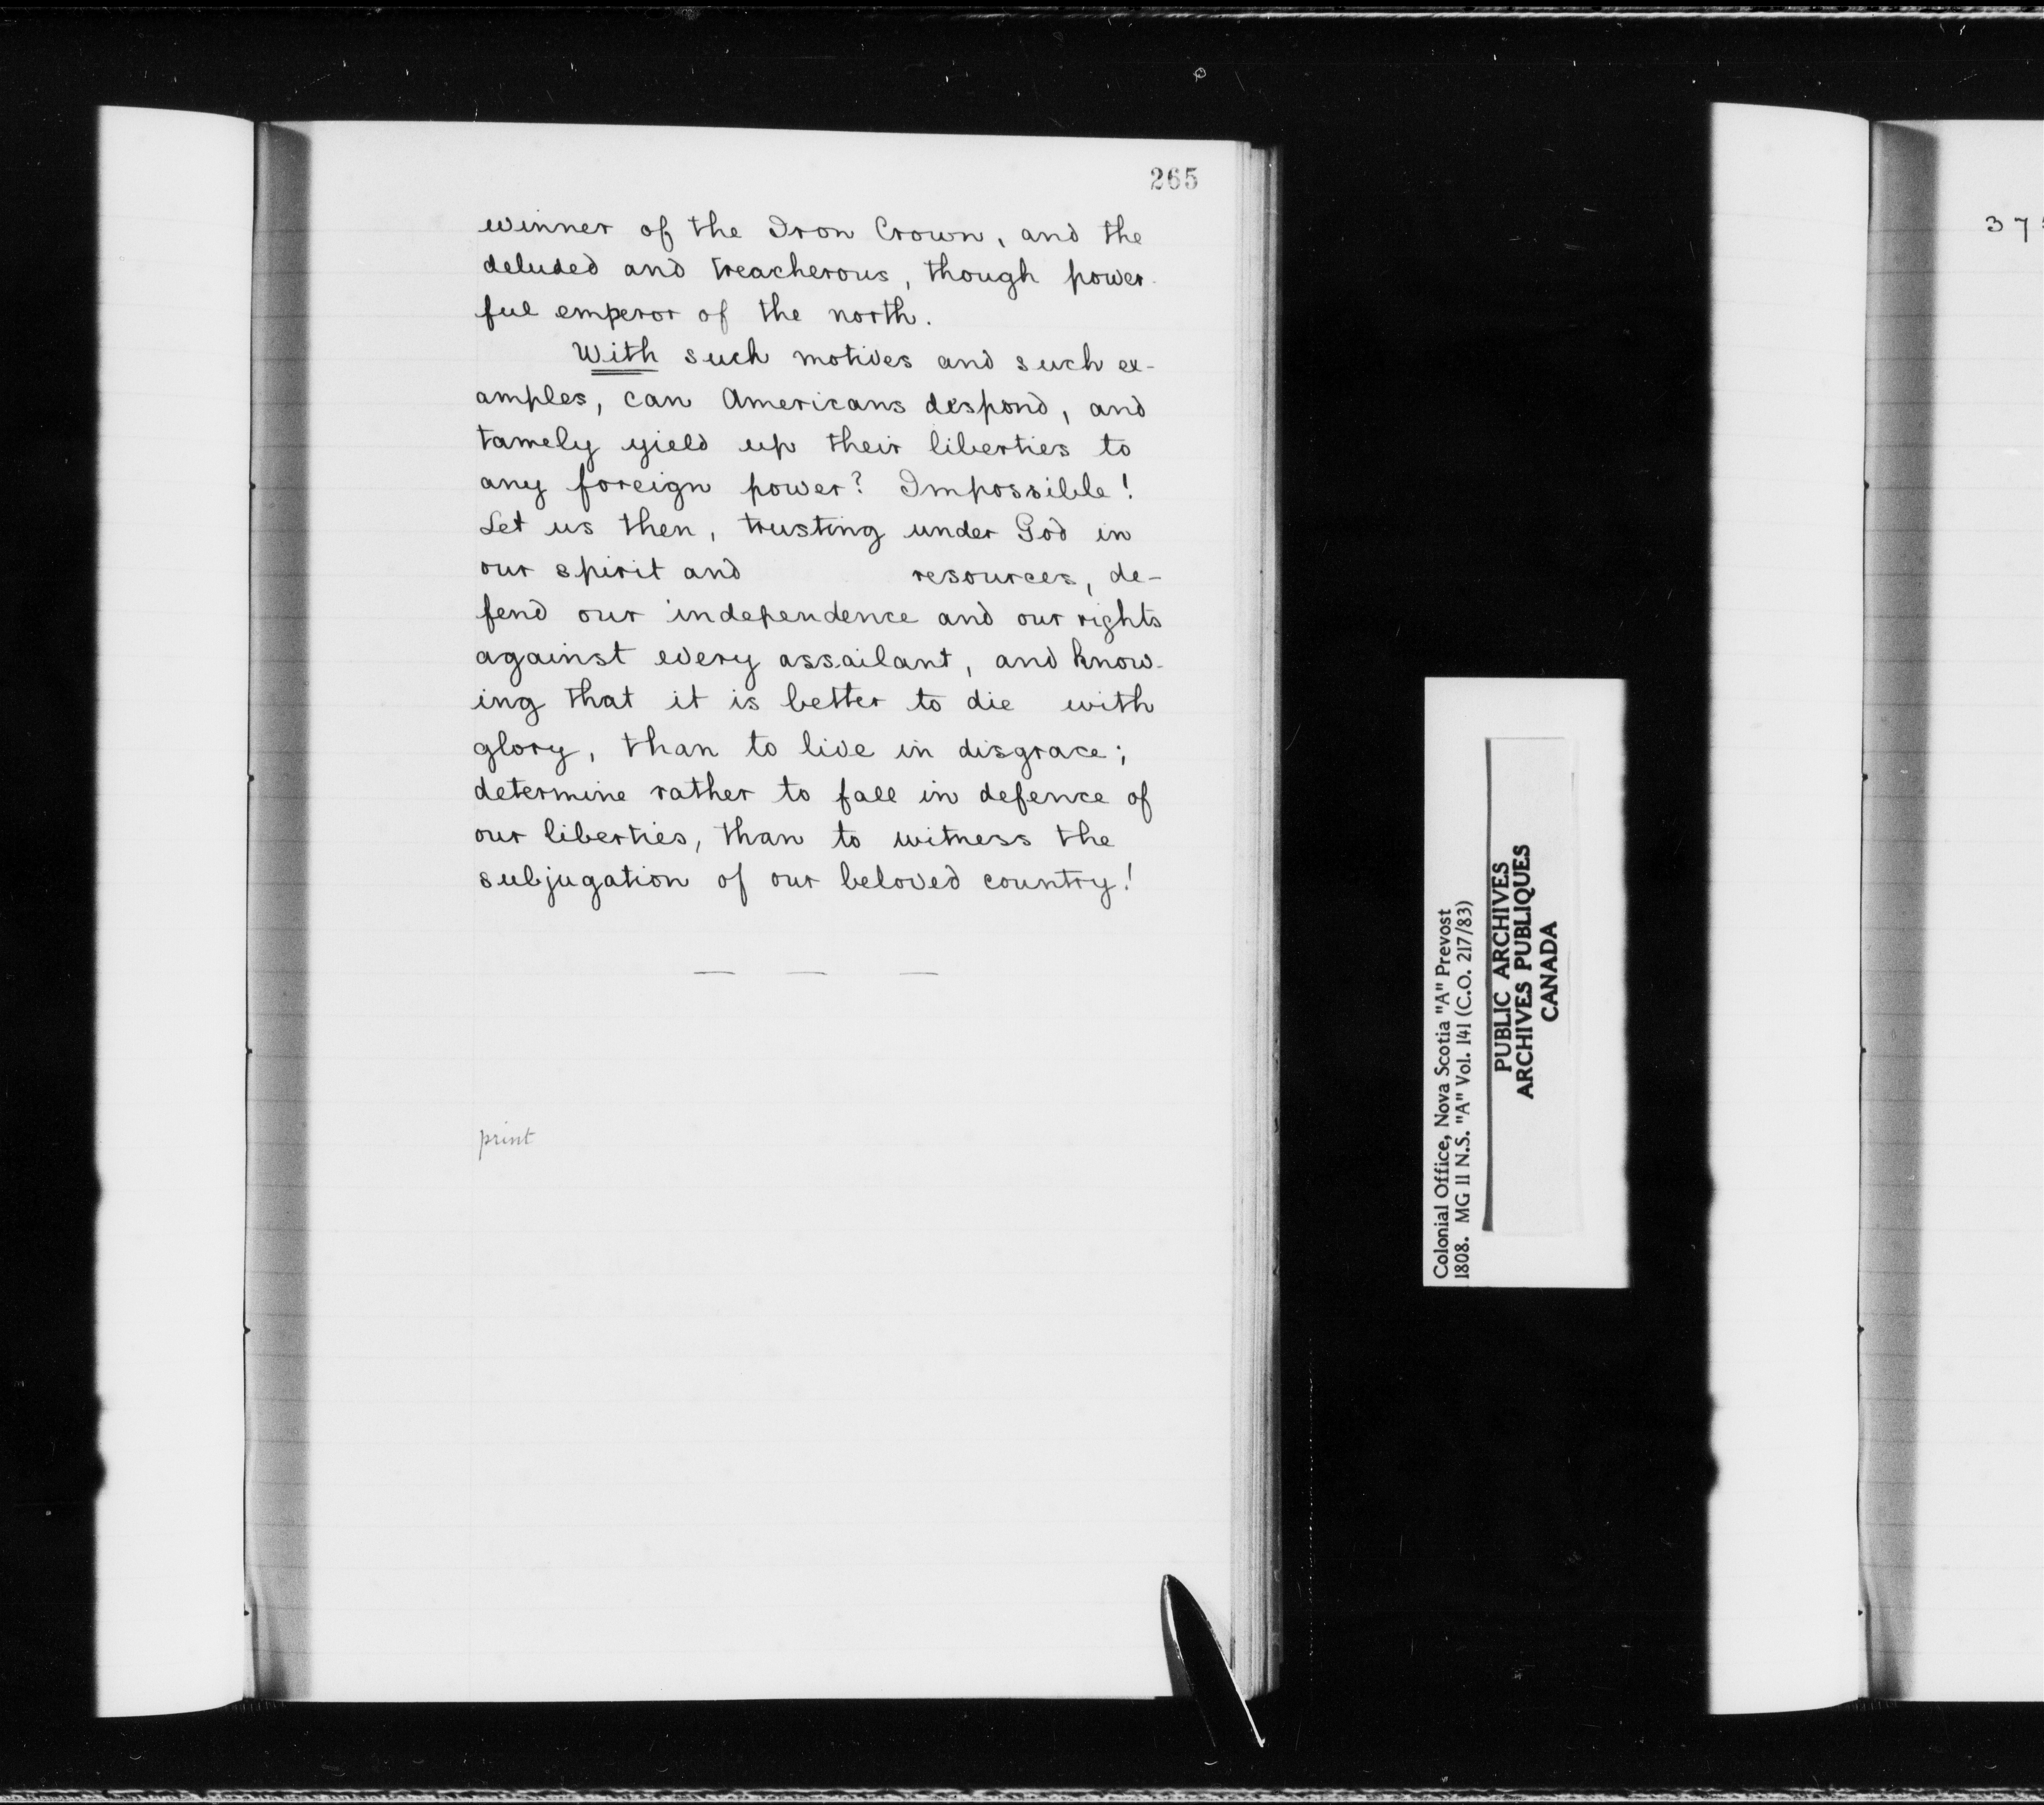 265
winner of the Iron Crown, and the
deluded and treacherous, though power-
ful emperor of the north.
With such motives and such ex-
amples, can Americans despond, and
tamely yield up their liberties to
any foreign power? Impossible!
Let us then, trusting under God in
our spirit and resources, de-
fend our independence and our rights
against every assailant, and know-
ing that it is better to die with
glory, than to live in disgrace;
determine rather to fall in defence of
our liberties, than to witness the
subjugation of our beloved country!
print
Colonial Office, Nova Scotia "A" Prevost
1808. MG 11 N.S. "A" Vol. 141 (C.O. 217/83)
PUBLIC ARCHIVES
ARCHIVES PUBLIQUES
CANADA